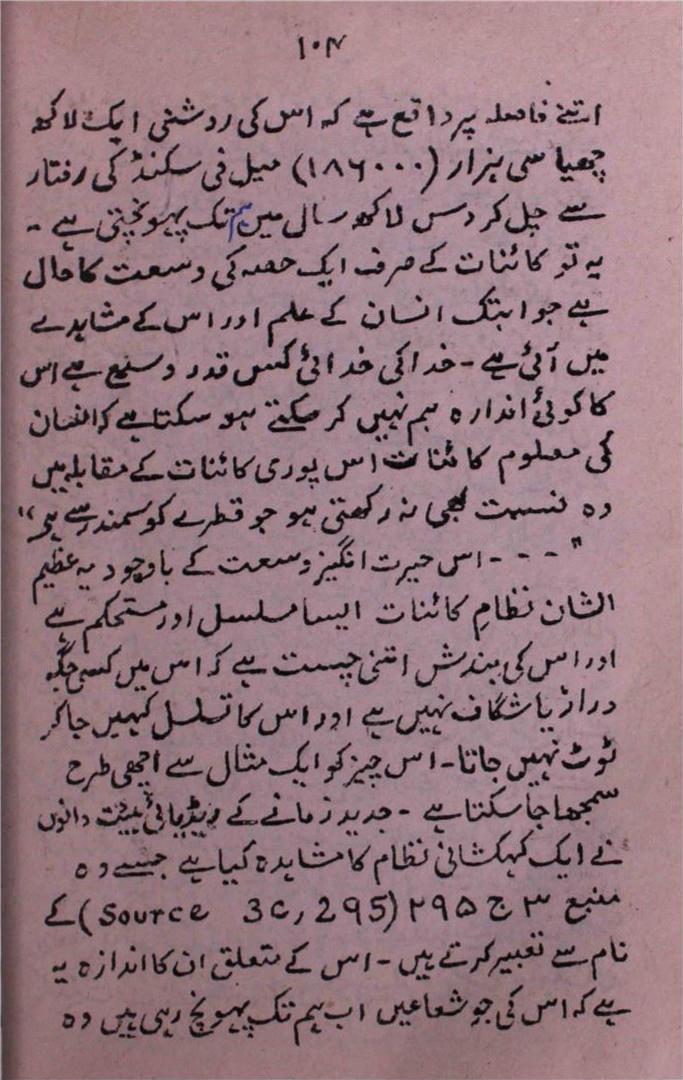 ۱۰۴
اتنے فاصلہ پر واقع ہے کہ اس کی روشنی ایک لاکھ
چھیاسی ہزار (۱۸۶۰۰۰) میل فی سکنڈ کی رفتار
سے چل کر دس لاکھ سال میں ہم تک پہونچتی ہے ۔
یہ تو کائنات کے صرف ایک حصہ کی وسعت کا حال
ہے جو ابتک انسان کے علم اور اس کے مشاہدے
میں آئی ہے ۔ خدا کی خدائی کس قدر وسیع ہے اس
کا کوئی اندازہ ہم نہیں کر سکتے ہو سکتا ہے کہ انسان
کی معلوم کائنات اس پوری کائنات کے مقابلہ میں
وہ نسبت بھی نہ رکھتی ہو جو قطرے کو سمندر سے ہے"
" ۔ ۔ ۔ ۔ اس حیرت انگیز وسعت کے باوجود یہ عظیم
الشان نظامِ کائنات ایسا مسلسل اور مستحکم ہے
اور اس کی بندش اتنی چست ہے کہ اس میں کسی جگہ
دراڑ یا شگاف نہیں ہے اور اس کا تسلسل کہیں جا کر
ٹوٹ نہیں جاتا ۔ اس چیز کو ایک مثال سے اچھی طرح
سمجھا جا سکتا ہے ۔ جدید زمانے کے ریڈیائی ہیئت دانوں
نے ایک کہکشانی نظام کا مشاہدہ کیا ہے جسے وہ
منبع ۳ ج ۲۹۵ (Source 3c, 295) کے
نام سے تعبیر کرتے ہیں ۔ اس کے متعلق ان کا اندازہ یہ
ہے کہ اس کی جو شعاعیں اب ہم تک پہونچ رہی ہیں وہ